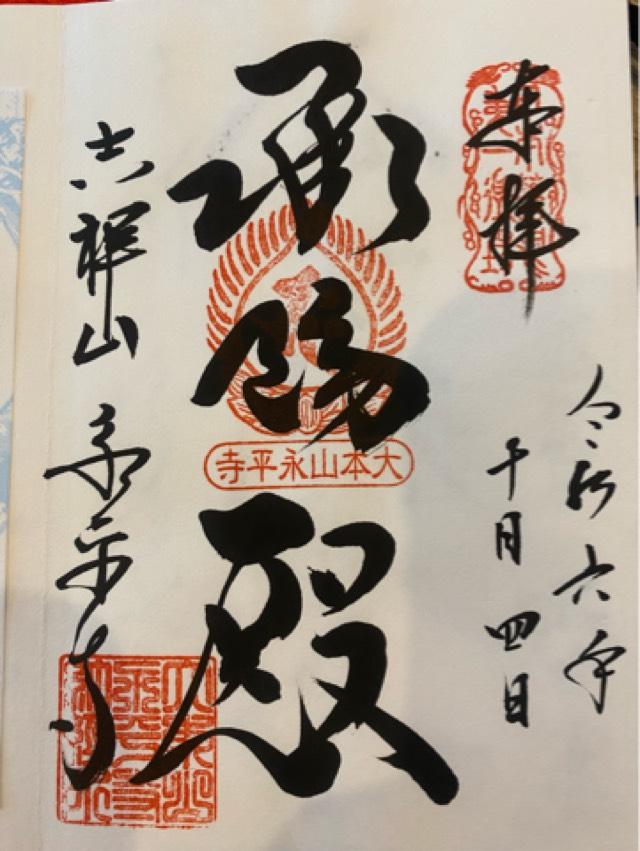 奉拝
令和六年
十月四日
承陽殿
大本山永平寺
吉祥山永平寺